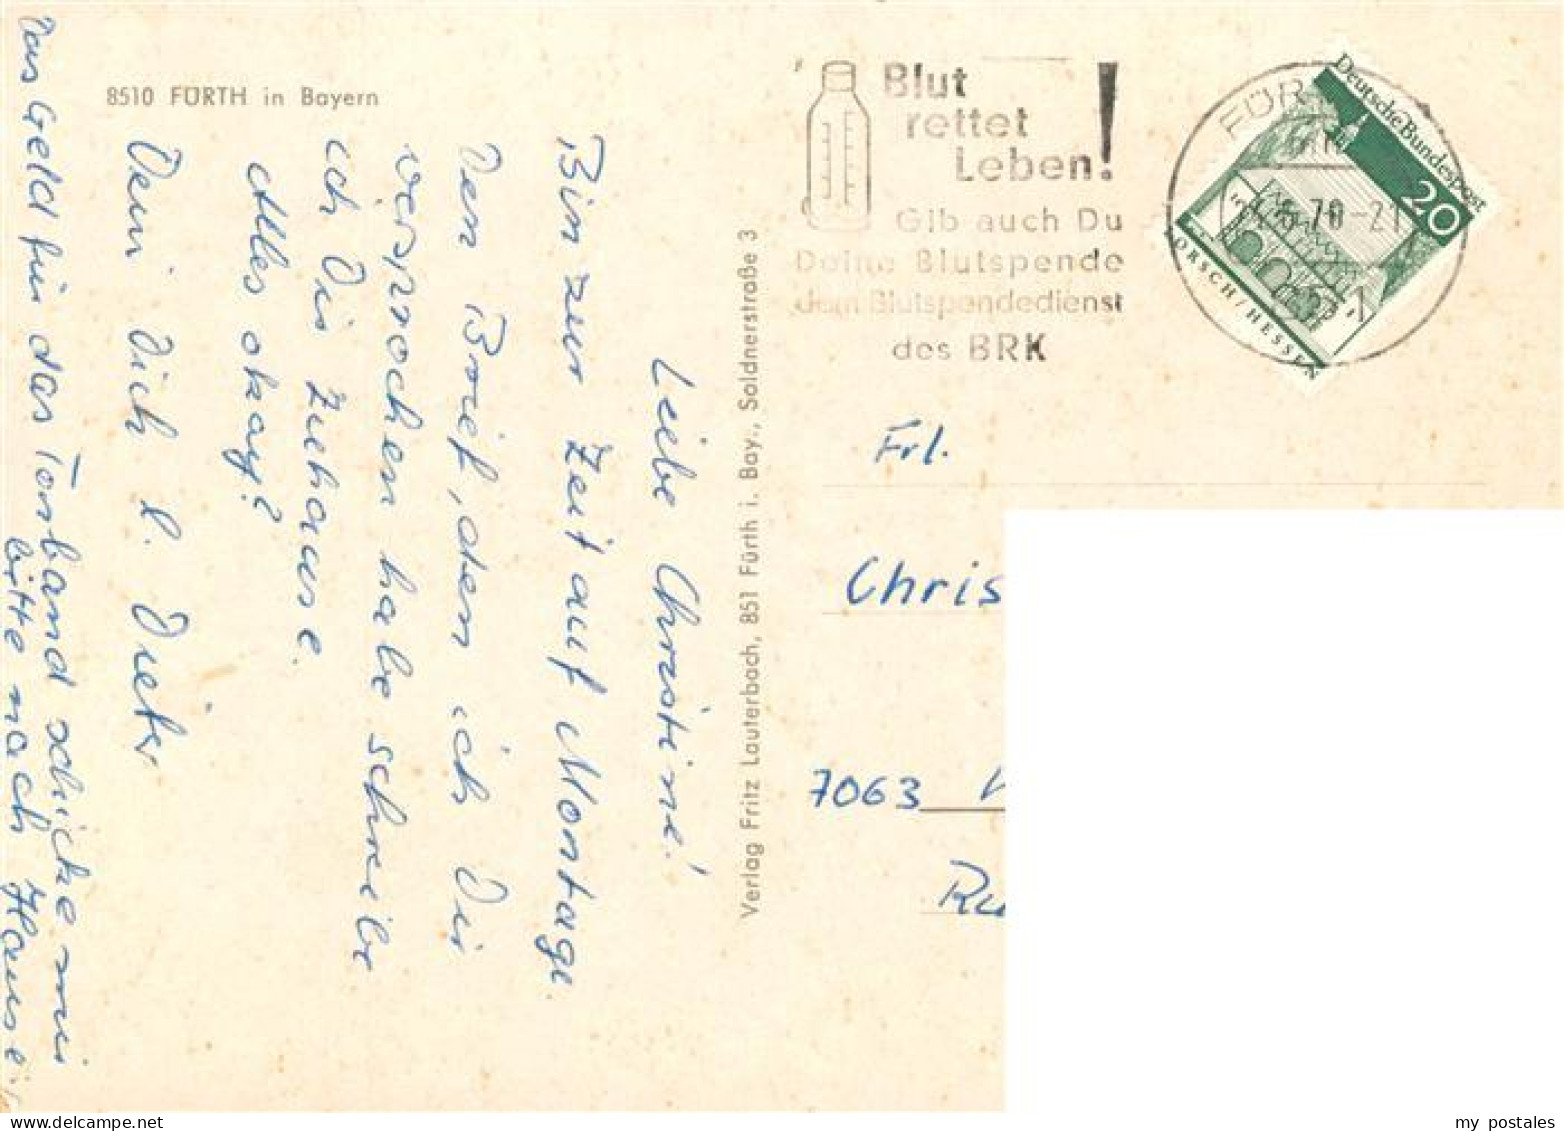 8510 FÜRTH in Bayern
Liebe Christine!
Bin zur Zeit auf Montage.
Den Brief, den ich Dir
versprochen habe schreibe
ich Dir Zuhause.
Alles okay?
Dein Dich l. Dieter
Das Geld für das Tonband schicke mir
bitte nach Hause.
Verlag Fritz Lauterbach, 851 Fürth i. Bay., Soldnerstraße 3
Blut
rettet
Leben!
Gib auch Du
Deine Blutspende
dem Blutspendedienst
des BRK
FÜR
70-21
Deutsche Bundespost
20
LORSCH/HESSEN
Frl.
Chris
7063
Ru
my postales